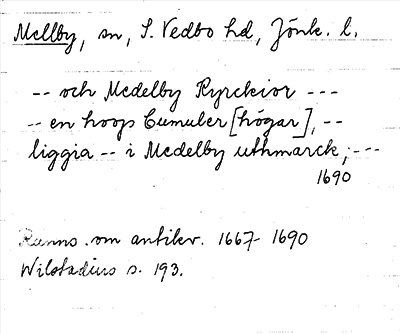 Mellby, sn, S. Vedbo hd, Jönk. l.
-- och Medelby Kyrckior ---
-- en hoop Cumuler [högar], --
liggia -- i Medelby uthmarck, ---
1690
Ranns. om antikv. 1667-1690
Wilstadius s. 193.